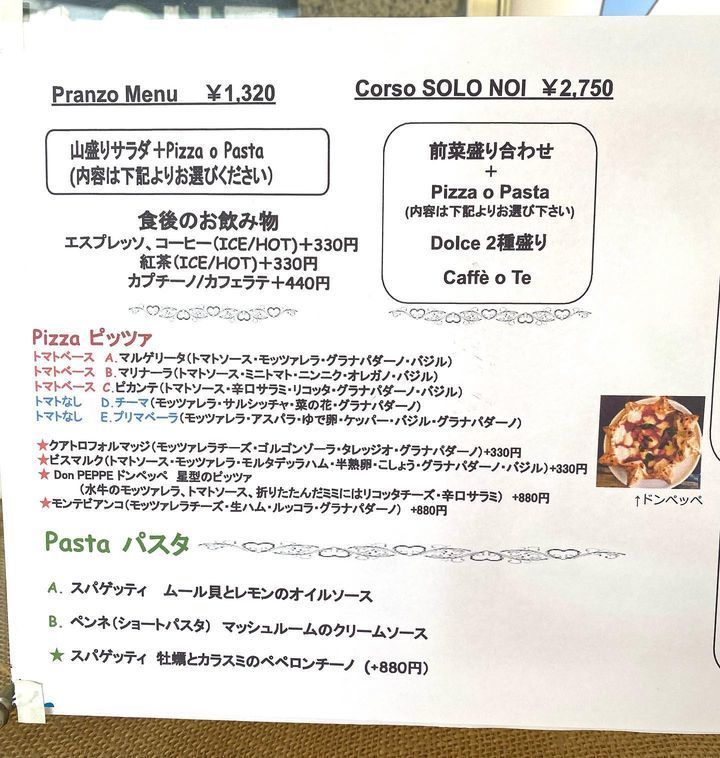 Pranzo Menu ￥1,320
山盛りサラダ＋Pizza o Pasta
(内容は下記よりお選びください)
食後のお飲み物
エスプレッソ、コーヒー(ICE/HOT)＋330円
紅茶(ICE/HOT)＋330円
カプチーノ/カフェラテ＋440円
Corso SOLO NOI ￥2,750
前菜盛り合わせ
＋
Pizza o Pasta
(内容は下記よりお選び下さい)
Dolce 2種盛り
Caffè o Te
Pizza ピッツァ
トマトベース A.マルゲリータ(トマトソース・モッツァレラ・グラナパダーノ・バジル)
トマトベース B.マリナーラ(トマトソース・ミニトマト・ニンニク・オレガノ・バジル)
トマトベース C.ピカンテ(トマトソース・辛口サラミ・リコッタ・グラナパダーノ・バジル)
トマトなし D.チーマ(モッツァレラ・サルシッチャ・菜の花・グラナパダーノ)
トマトなし E.プリマベーラ(モッツァレラ・アスパラ・ゆで卵・ケッパー・バジル・グラナパダーノ)
★クアトロフォルマッジ(モッツァレラチーズ・ゴルゴンゾーラ・タレッジオ・グラナパダーノ)+330円
★ビスマルク(トマトソース・モッツァレラ・モルタデッラハム・半熟卵・こしょう・グラナパダーノ・バジル)+330円
★ Don PEPPE ドンペッペ 星型のピッツァ
(水牛のモッツァレラ、トマトソース、折りたたんだミミにはリコッタチーズ・辛口サラミ) +880円
★モンテビアンコ(モッツァレラチーズ・生ハム・ルッコラ・グラナパダーノ) +880円
↑ドンペッペ
Pasta パスタ
A. スパゲッティ ムール貝とレモンのオイルソース
B. ペンネ(ショートパスタ) マッシュルームのクリームソース
★ スパゲッティ 牡蠣とカラスミのペペロンチーノ (+880円)